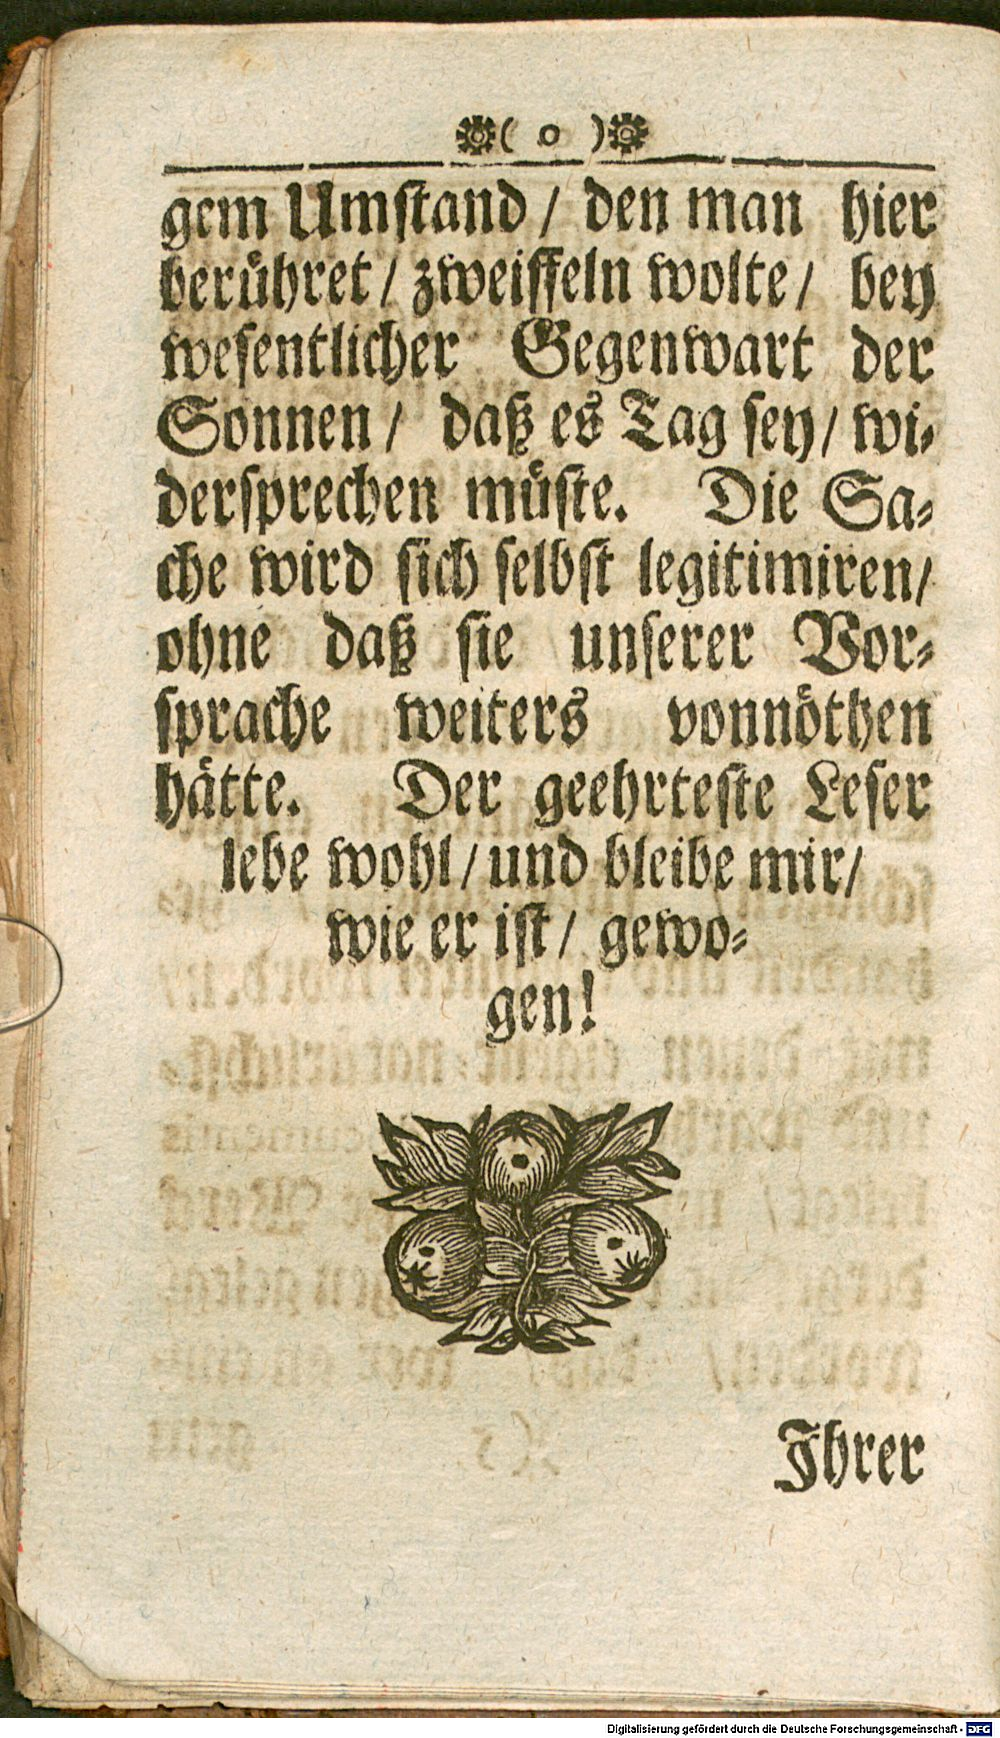 ( o )
gem Umstand / den man hier
berühret / zweiffeln wolte / bey
wesentlicher Gegenwart der
Sonnen / daß es Tag sey / wi-
dersprechen müste. Die Sa-
che wird sich selbst legitimiren /
ohne daß sie unserer Vor-
sprache weiters vonnöthen
hätte. Der geehrteste Leser
lebe wohl / und bleibe mir /
wie er ist / gewo-
gen!
Ihrer
Digitalisierung gefördert durch die Deutsche Forschungsgemeinschaft - DFG